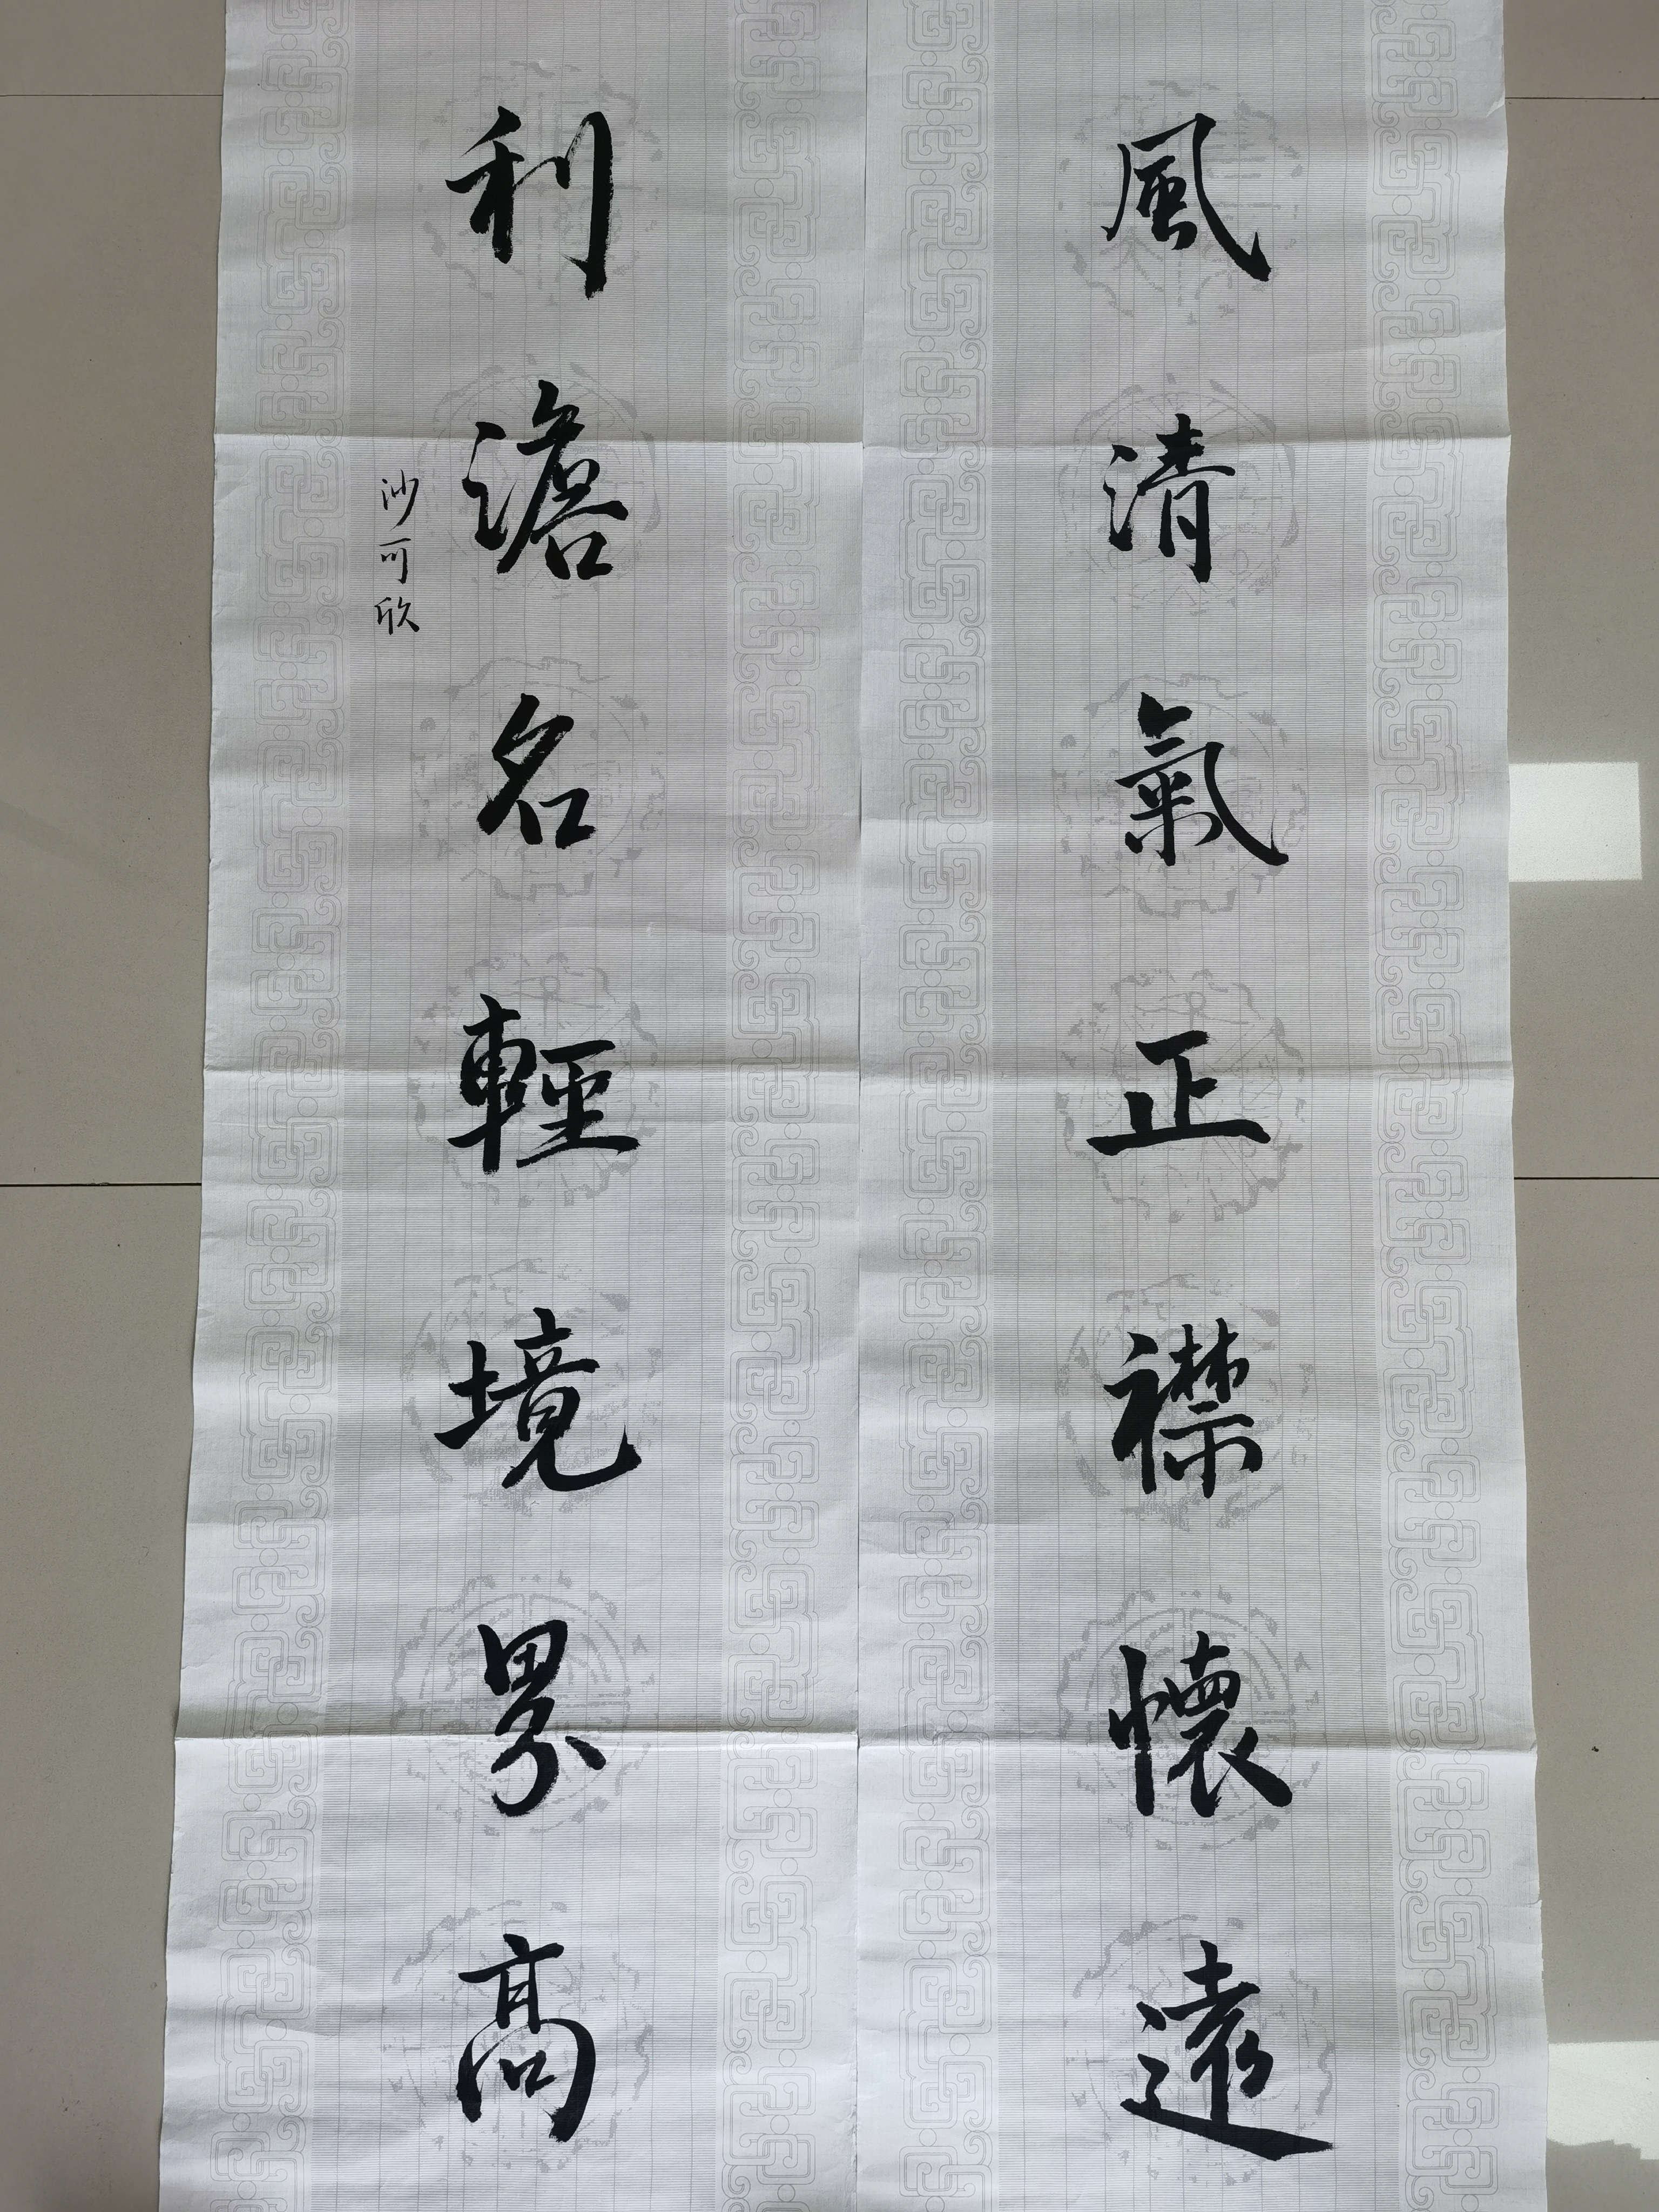 風清氣正襟懷遠
利澹名輕境界高
沙可欣